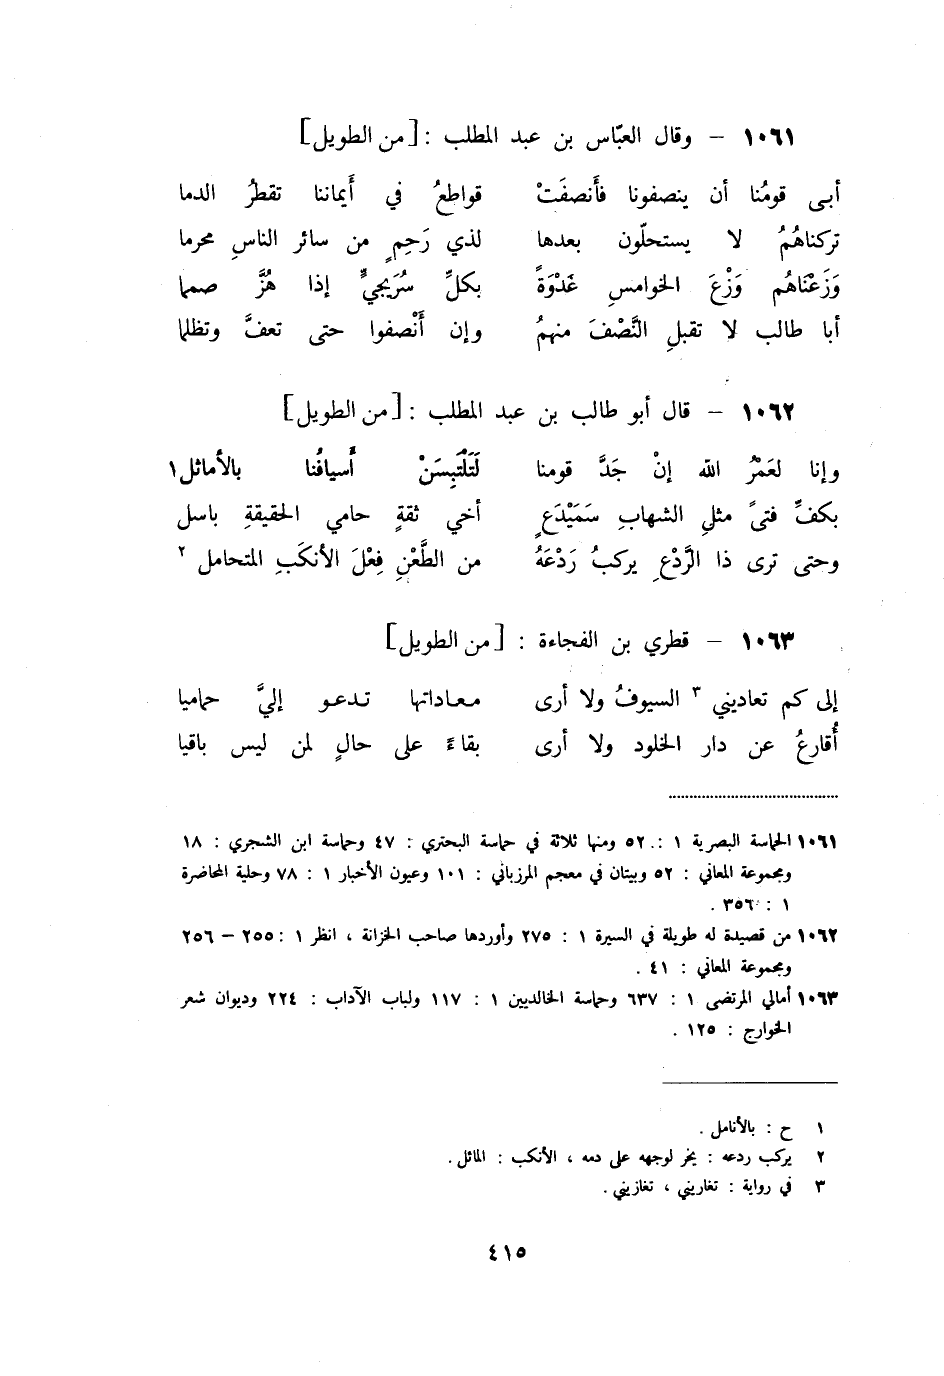 ١٠٦١ – وقال العبّاس بن عبد المطلب : [من الطويل]
أبى قومُنا أن ينصفونا فأَنصفَتْ قواطعُ في أَيماننا تقطرُ الدما
تركناهُمُ لا يستحلّون بعدها لذي رَحِمٍ من سائر الناسِ محرما
وَزَعْنَاهُم وَزْعَ الخوامسِ غَدْوَةً بكلِّ سُرَيجيٍّ إذا هُزَّ صمما
أبا طالب لا تقبلِ النَّصْفَ منهمُ وإن أَنْصفوا حتى تعفَّ وتظلما
١٠٦٢ – قال أبو طالب بن عبد المطلب : [من الطويل]
وإنا لعَمْرُ الله إنْ جَدَّ قومنا لَتَلْتَبِسَنْ أَسيافُنا بالأماثل١
بكفِّ فتىً مثلِ الشهابِ سَمَيْدَعٍ أخي ثقةٍ حامي الحقيقةِ باسل
وحتى ترى ذا الرَّدْعِ يركبُ رَدْعَهُ من الطَّعْنِ فِعْلَ الأنكَبِ المتحامل ٢
١٠٦٣ – قطري بن الفجاءة : [من الطويل]
إلى كم تعاديني ٣ السيوفُ ولا أرى معاداتها تدعو إليَّ حماميا
أُقارعُ عن دار الخلود ولا أرى بقاءً على حالٍ لمن ليس باقيا
١٠٦١ الحماسة البصرية ١ : ٥٢ ومنها ثلاثة في حماسة البحتري : ٤٧ وحماسة ابن الشجري : ١٨
ومجموعة المعاني : ٥٢ وبيتان في معجم المرزباني : ١٠١ وعيون الأخبار ١ : ٧٨ وحلية المحاضرة
١ : ٣٥٦ .
١٠٦٢ من قصيدة له طويلة في السيرة ١ : ٢٧٥ وأوردها صاحب الخزانة ، انظر ١ : ٢٥٥ – ٢٥٦
ومجموعة المعاني : ٤١ .
١٠٦٣ أمالي المرتضى ١ : ٦٣٧ وحماسة الخالديين ١ : ١١٧ ولباب الآداب : ٢٢٤ وديوان شعر
الخوارج : ١٢٥ .
١ ح : بالأنامل .
٢ يركب ردعه : يخر لوجهه على دمه ، الأنكب : المائل .
٣ في رواية : تغاريني ، تغازيني .
٤١٥